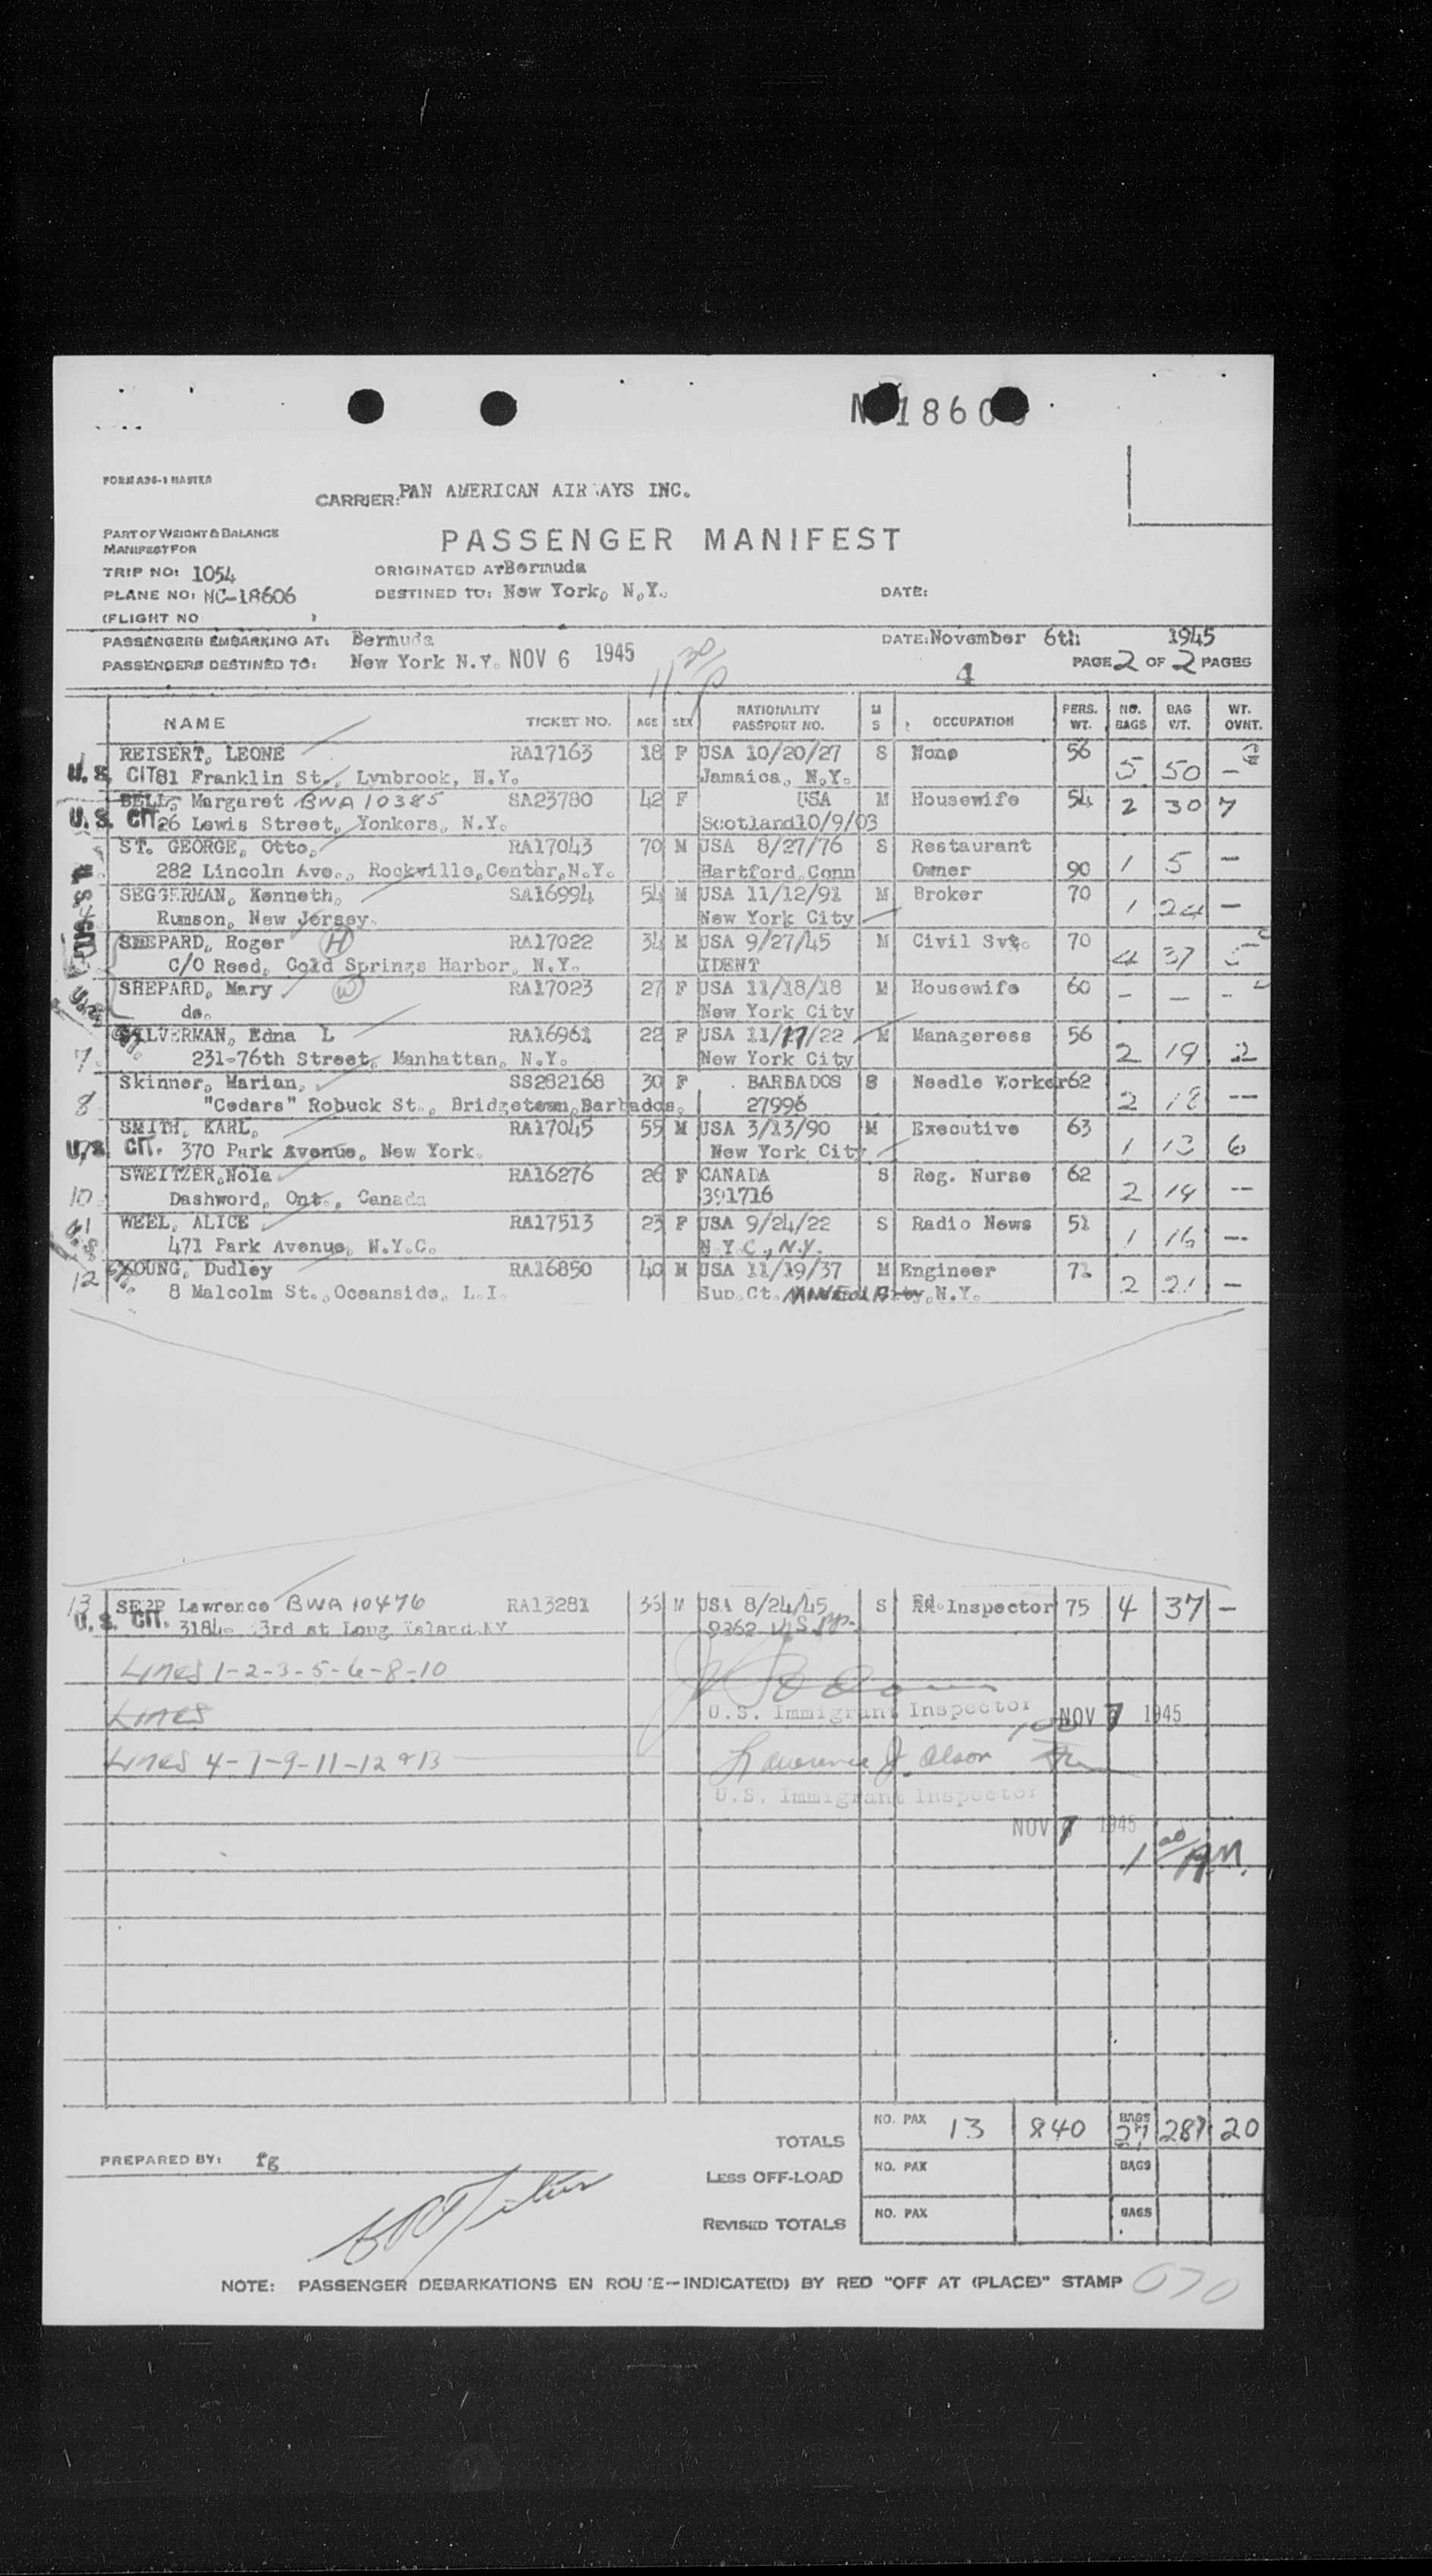 N 1860
FORM A36-1 MASTER
CARRIER: PAN AMERICAN AIRWAYS INC.
PART OF WEIGHT & BALANCE
MANIFEST FOR
PASSENGER MANIFEST
TRIP NO: 1054 ORIGINATED AT Bermuda
PLANE NO: NC-18606 DESTINED TO: New York, N.Y. DATE:
(FLIGHT NO )
PASSENGERS EMBARKING AT: Bermuda DATE: November 6th 1945
PASSENGERS DESTINED TO: New York N.Y. NOV 6 1945 PAGE 2 OF 2 PAGES
11 30/P 4
NAME TICKET NO. AGE SEX NATIONALITY PASSPORT NO. M S OCCUPATION PERS. WT. NO. BAGS BAG WT. WT. OVNT.
REISERT, LEONE RA17163 18 F USA 10/20/27 S None 56
U.S. CIT 81 Franklin St., Lynbrook, N.Y. Jamaica, N.Y. 5 50 -
BELL, Margaret BWA 10385 SA23780 42 F USA M Housewife 54 2 30 7
U.S. CIT 26 Lewis Street, Yonkers, N.Y. Scotland 10/9/03
ST. GEORGE, Otto, RA17043 70 M USA 8/27/76 S Restaurant
282 Lincoln Ave., Rockville, Center, N.Y. Hartford, Conn Owner 90 1 5 -
SEGGERMAN, Kenneth, SA16994 54 M USA 11/12/91 M Broker 70
Rumson, New Jersey. New York City 1 24 -
SHEPARD, Roger (H) RA17022 34 M USA 9/27/45 M Civil Svt. 70
C/O Reed, Cold Springs Harbor, N.Y. IDENT 4 37 5
SHEPARD, Mary (W) RA17023 27 F USA 11/18/18 M Housewife 60 - - -
do. New York City
SILVERMAN, Edna L RA16961 22 F USA 11/17/22 M Manageress 56
7 231-76th Street, Manhattan, N.Y. New York City 2 19 2
Skinner, Marian, SS282168 30 F BARBADOS S Needle Worker 62
8 "Cedars" Robuck St., Bridgetown, Barbados, 27996 2 18 --
SMITH, KARL, RA17045 55 M USA 3/13/90 M Executive 63
U.S. CIT. 370 Park Avenue, New York. New York City 1 13 6
SWEITZER, Nola RA16276 26 F CANADA S Reg. Nurse 62
10 Dashword, Ont., Canada 391716 2 14 --
WEEL, ALICE RA17513 23 F USA 9/24/22 S Radio News 51
U.S. 471 Park Avenue, N.Y.C. N.Y.C., N.Y. 1 16 --
YOUNG, Dudley RA16850 40 M USA 11/19/37 M Engineer
12 8 Malcolm St., Oceanside, L.I. Sup. Ct. N.Y. 2 21 -
13 SEPP Lawrence BWA 10476 RA13281 36 M USA 8/24/45 S Rd. Inspector 75 4 37 -
U.S. CIT. 3184- 33rd st Long Island NY 9262 U.S. pp.
Lines 1-2-3-5-6-8-10
Lines U.S. Immigrant Inspector NOV 7 1945
Lines 4-7-9-11-12 & 13 Lawrence J. Olson
U.S. Immigrant Inspector
NOV 7 1945
1 20/AM.
TOTALS NO. PAX 13 840 BAGS 27 287 20
PREPARED BY: fg
LESS OFF-LOAD NO. PAX BAGS
REVISED TOTALS NO. PAX BAGS
NOTE: PASSENGER DEBARKATIONS EN ROUTE--INDICATE(D) BY RED "OFF AT (PLACE)" STAMP 070